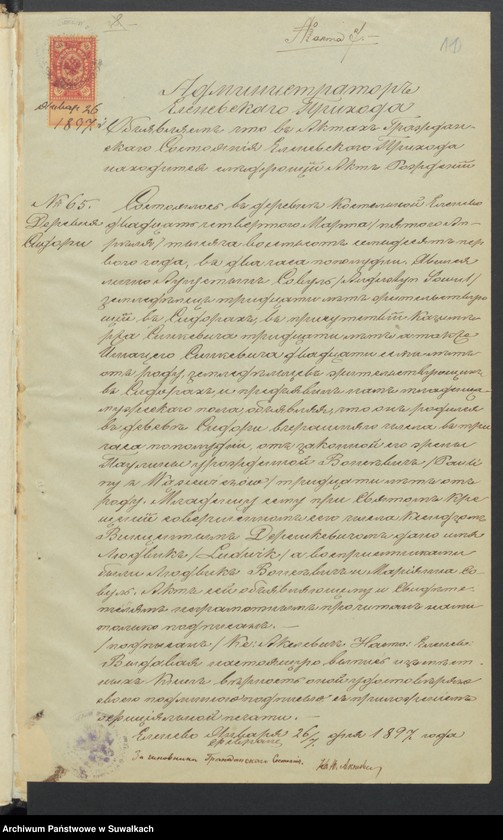 8.
Акта 3/
11
Января 26
1897 г.
Администраторъ
Еленевскаго Прихода
Объявляетъ что въ Актахъ Граждан-
скаго Состоянія Еленевскаго Прихода
находится слѣдующій Актъ Рожденія
№ 65.
Деревня
Сидоры
Состоялось въ деревнѣ Костельной Еленево
двадцать четвертаго Марта /пятаго Ап-
рѣля/ тысяча восемьсотъ семьдесятъ пер-
ваго года, въ два часа пополудни. Явился
лично Августынъ Совуль /Augustyn Sowul/
земледѣлецъ тридцати лѣтъ жительствую-
щій въ Сидорахъ, въ присутствіи Казимі-
ра Синкевича тридцати лѣтъ а также
Игнація Синкевича двадцати семи лѣтъ
отъ роду, земледѣльцевъ жительствующихъ
въ Сидорахъ и предъявилъ намъ младенца
мужескаго пола, объявляя, что онъ родился
въ деревнѣ Сидоры вчерашняго числа въ три
часа пополудни, отъ законной его жены
Паулины урожденной Воневичъ /Pauli-
ny z
тридцати лѣтъ отъ
роду. Младенцу сему при Святомъ Кре-
щеніи совершенномъ сего числа Ксендзомъ
Викентіемъ Дерешкевичомъ дано имя
Людвикъ /Ludwik/ а воспріемниками
были Людвикъ Воневичъ и Маріанна Со-
вуль. Актъ сей объявляющему и свидѣте-
телямъ неграмотнымъ прочитанъ нами
только подписанъ. —
/подписалъ/ Кс: Акевичъ Насто: Еленев:
Выдавая настоящую выпись изъ мѣст-
ныхъ книгъ вѣрность оной удостовѣряю
своею подлинною подписью съ приложеніемъ
офиціальной печати. —
Еленево Января 26/7 дня 1897 года
Февраля
За чиновника Гражданскаго Состоян.
Archiwum Państwowe w Suwałkach